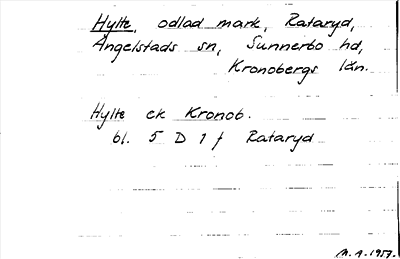 Hylte, odlad mark, Rataryd,
Ängelstads sn, Sunnerbo hd,
Kronobergs län.
Hylte ek Kronob.
bl. 5 D 1 f Rataryd
M. A. 1957.